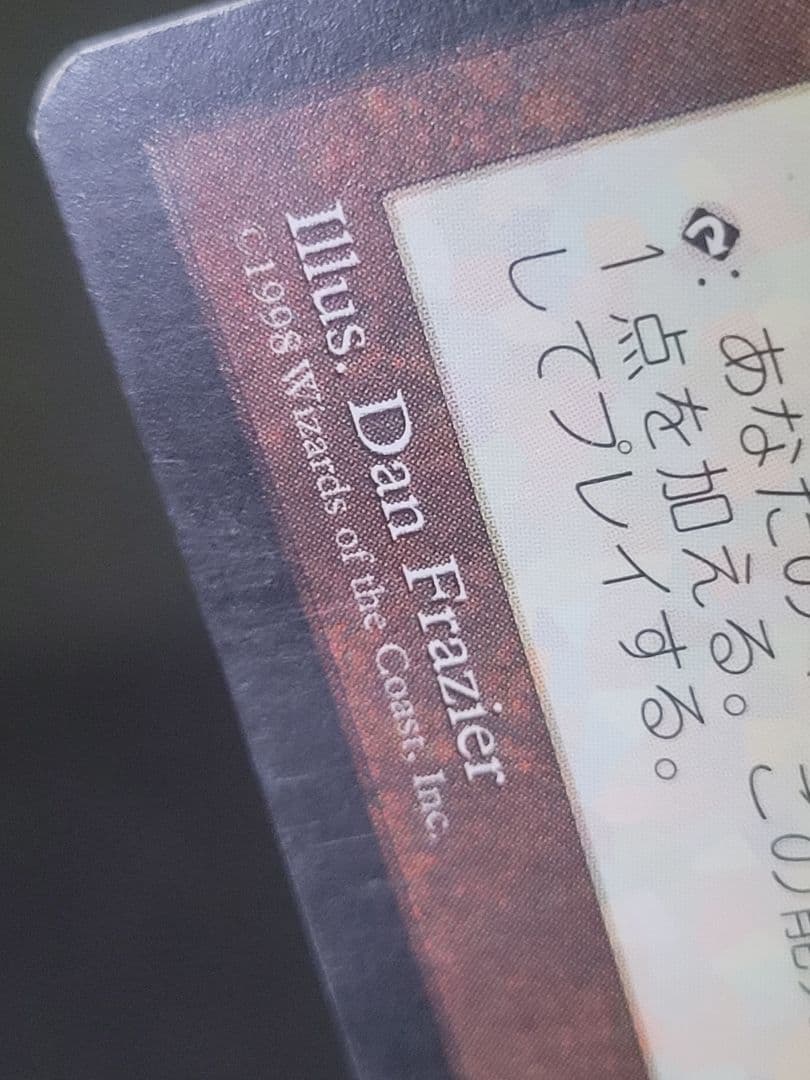 : あなたの
1点を加える。この能
してプレイする。
Illus. Dan Frazier
©1998 Wizards of the Coast, Inc.